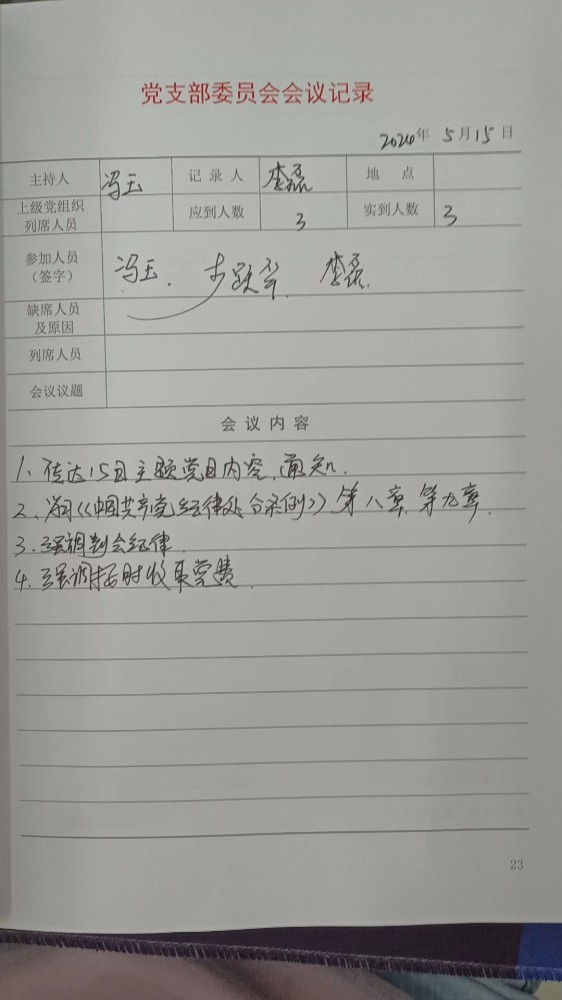 党支部委员会会议记录
2024年 5月15日
主持人 冯玉 记录人 李磊 地点
上级党组织列席人员 应到人数 3 实到人数 3
参加人员(签字) 冯玉. 李磊.
缺席人员及原因
列席人员
会议议题
会议内容
1、传达15日主题党日内容,通知.
2、《中国共产党纪律处分条例》第八章.第九章.
3、强调到会纪律.
4、强调按时收取党费.
23